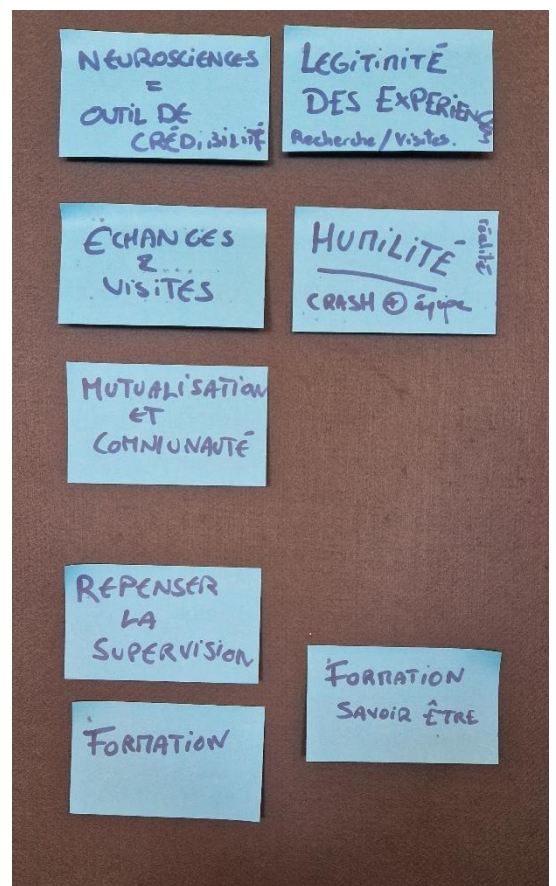 NEUROSCIENCES
=
OUTIL DE
CRÉDIBILITÉ
LEGITIMITÉ
DES EXPERIENCES
Recherche/Visites.
ÉCHANGES
&
VISITES
HUMILITÉ
réalité
CRASH + équipe
MUTUALISATION
ET
COMMUNAUTÉ
REPENSER
LA
SUPERVISION
FORMATION
SAVOIR ÊTRE
FORMATION